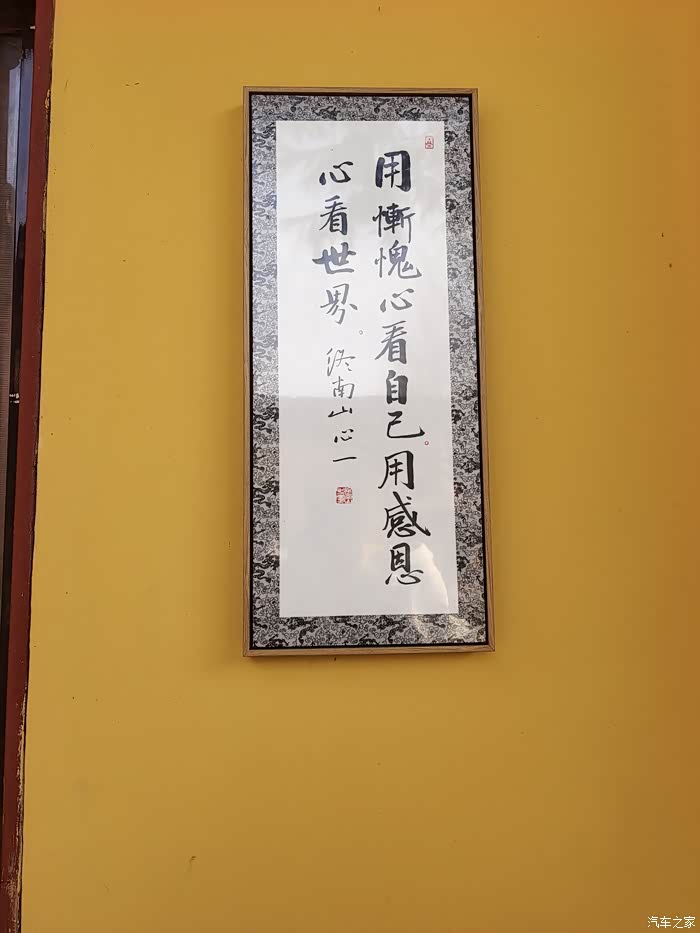 用慚愧心看自己。用感恩
心看世界。 终南山心一
汽车之家